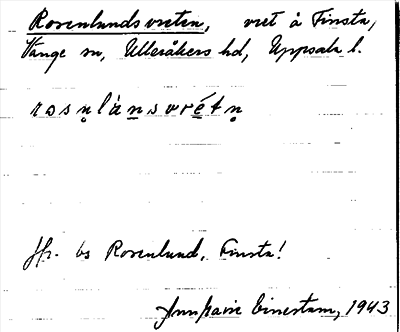 Rosenlundsvreten, vret å Finsta,
Vänge sn, Ulleråkers hd, Uppsala l.
rosn̥lánsvrétn̥
Jfr. bs Rosenlund, Finsta!
Einestam, 1943